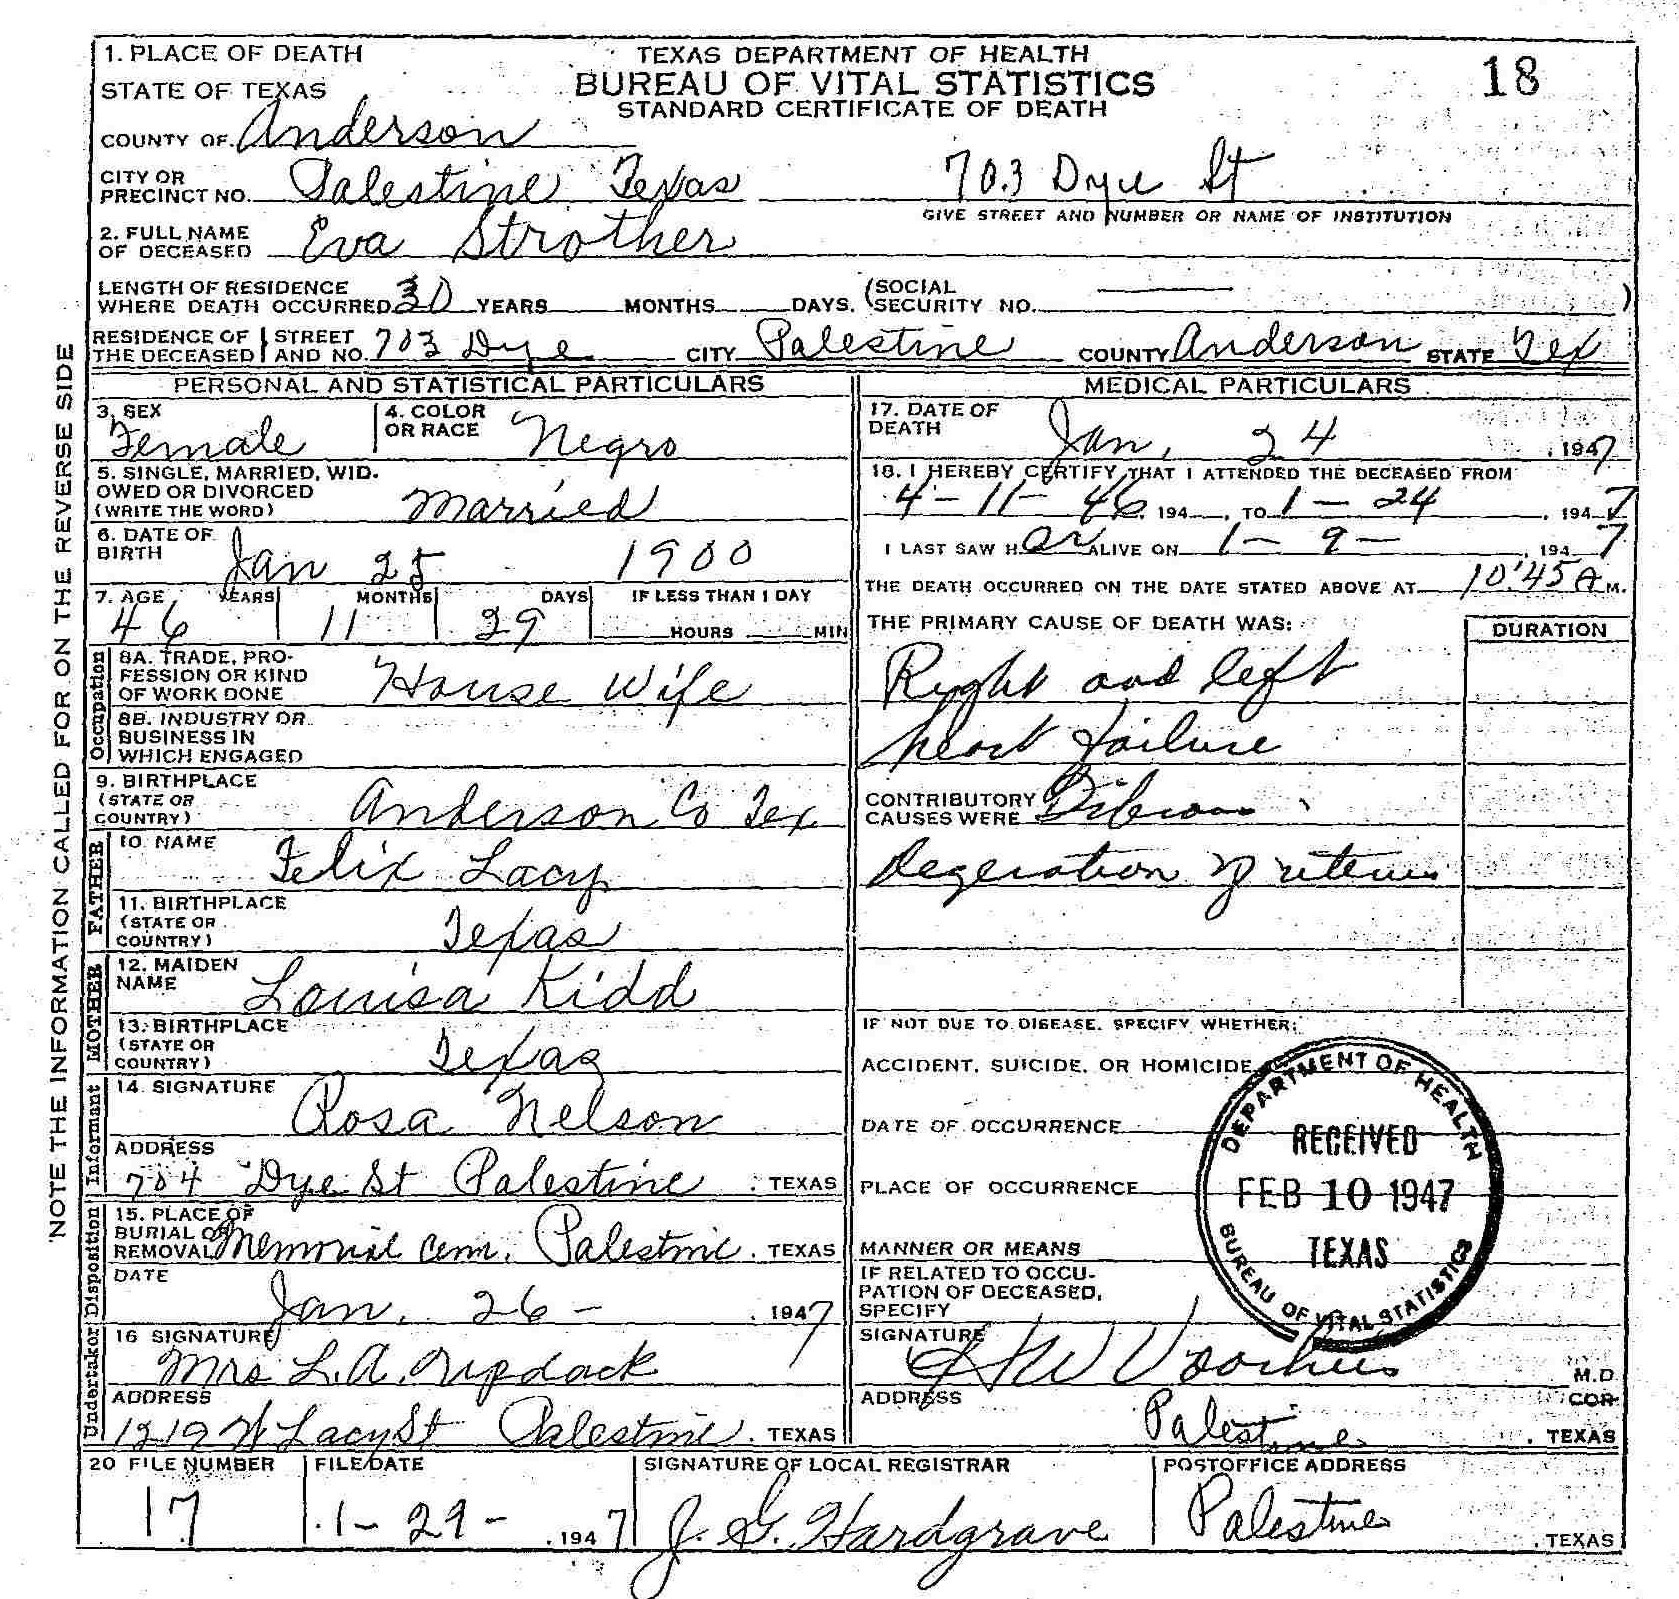 1. PLACE OF DEATH
STATE OF TEXAS
TEXAS DEPARTMENT OF HEALTH
BUREAU OF VITAL STATISTICS
STANDARD CERTIFICATE OF DEATH
18
COUNTY OF Anderson
CITY OR PRECINCT NO. Palestine, Texas 703 Dye St
GIVE STREET AND NUMBER OR NAME OF INSTITUTION
2. FULL NAME OF DECEASED Eva Strother
LENGTH OF RESIDENCE WHERE DEATH OCCURRED 30 YEARS MONTHS DAYS. (SOCIAL SECURITY NO. )
RESIDENCE OF THE DECEASED STREET AND NO. 703 Dye CITY Palestine COUNTY Anderson STATE Tex
NOTE THE INFORMATION CALLED FOR ON THE REVERSE SIDE
PERSONAL AND STATISTICAL PARTICULARS
3. SEX Female 4. COLOR OR RACE Negro
5. SINGLE, MARRIED, WIDOWED OR DIVORCED (WRITE THE WORD) Married
6. DATE OF BIRTH Jan 25 1900
7. AGE YEARS MONTHS DAYS IF LESS THAN 1 DAY
46 11 29 HOURS MIN
Occupation
8A. TRADE, PROFESSION OR KIND OF WORK DONE House Wife
8B. INDUSTRY OR BUSINESS IN WHICH ENGAGED
9. BIRTHPLACE (STATE OR COUNTRY) Anderson Co Tex
FATHER
10. NAME Felix Lacy
11. BIRTHPLACE (STATE OR COUNTRY) Texas
MOTHER
12. MAIDEN NAME Louisa Kidd
13. BIRTHPLACE (STATE OR COUNTRY) Texas
Informant
14. SIGNATURE Rosa Nelson
ADDRESS 704 Dye St Palestine, TEXAS
Disposition
15. PLACE OF BURIAL OR REMOVAL Memorial Cem. Palestine. TEXAS
DATE Jan. 26- 1947
Undertaker
16 SIGNATURE Mrs L.A.
ADDRESS 1219 W Lacy St Palestine. TEXAS
MEDICAL PARTICULARS
17. DATE OF DEATH Jan, 24, 1947
18. I HEREBY CERTIFY THAT I ATTENDED THE DECEASED FROM
4-11-46, 194 , TO 1-24, 1947
I LAST SAW Her ALIVE ON 1-9-, 1947
THE DEATH OCCURRED ON THE DATE STATED ABOVE AT 10:45 A M.
THE PRIMARY CAUSE OF DEATH WAS: DURATION
Right and left
heart failure
CONTRIBUTORY CAUSES WERE Fibrous
degeration of uterus
IF NOT DUE TO DISEASE, SPECIFY WHETHER:
ACCIDENT, SUICIDE, OR HOMICIDE
DATE OF OCCURRENCE
PLACE OF OCCURRENCE
MANNER OR MEANS
IF RELATED TO OCCUPATION OF DECEASED, SPECIFY
DEPARTMENT OF HEALTH
RECEIVED
FEB 10 1947
TEXAS
BUREAU OF VITAL STATISTICS
SIGNATURE W Voorhees M.D
COR
ADDRESS Palestine, TEXAS
20 FILE NUMBER FILE DATE SIGNATURE OF LOCAL REGISTRAR POSTOFFICE ADDRESS
17 1-29-, 1947 J. G. Hardgrave Palestine, TEXAS